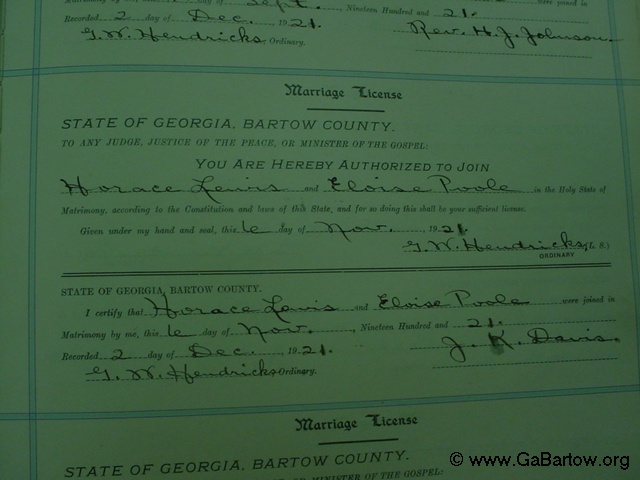 Sept.
were joined in
Nineteen Hundred and 21.
Recorded 2 day of Dec. 1921.
G. W. Hendricks, Ordinary.
Rev. H. J. Johnson.
Marriage License
STATE OF GEORGIA, BARTOW COUNTY.
TO ANY JUDGE, JUSTICE OF THE PEACE, OR MINISTER OF THE GOSPEL:
YOU ARE HEREBY AUTHORIZED TO JOIN
Horace Lewis and Eloise Poole in the Holy State of
Matrimony, according to the Constitution and laws of this State, and for so doing this shall be your sufficient license.
Given under my hand and seal, this 6 day of Nov. , 1921.
G. W. Hendricks, (L. S.)
ORDINARY
STATE OF GEORGIA, BARTOW COUNTY.
I certify that Horace Lewis and Eloise Poole were joined in
Matrimony by me, this 6 day of Nov. , Nineteen Hundred and 21.
Recorded 2 day of Dec. , 1921.
J. K. Davis.
G. W. Hendricks Ordinary.
Marriage License
STATE OF GEORGIA, BARTOW COUNTY.
OR MINISTER OF THE GOSPEL:
© www.GaBartow.org